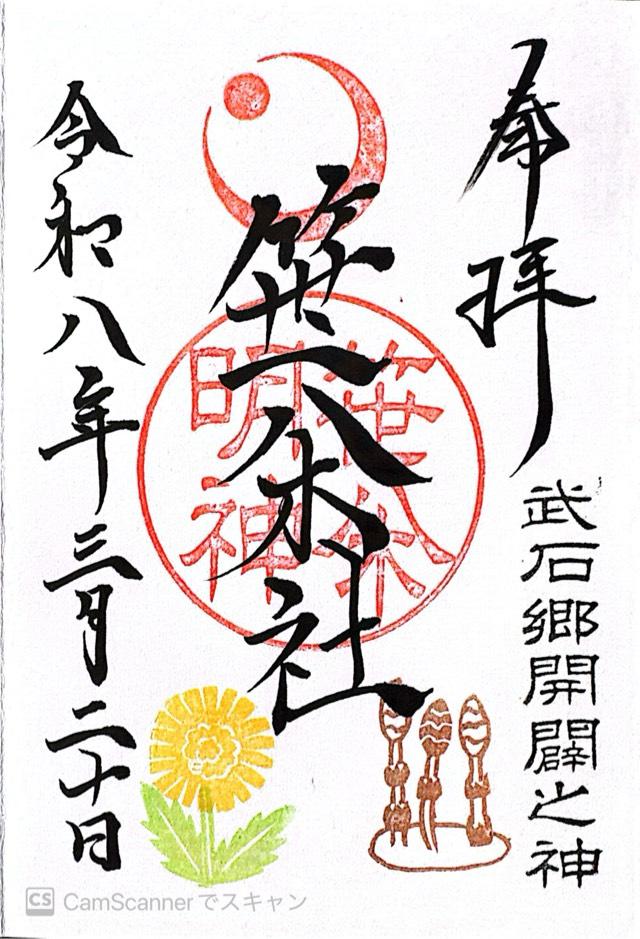 奉拝
武石郷開闢之神
笹八木社
笹八木
明神
令和八年三月二十日
CS CamScannerでスキャン